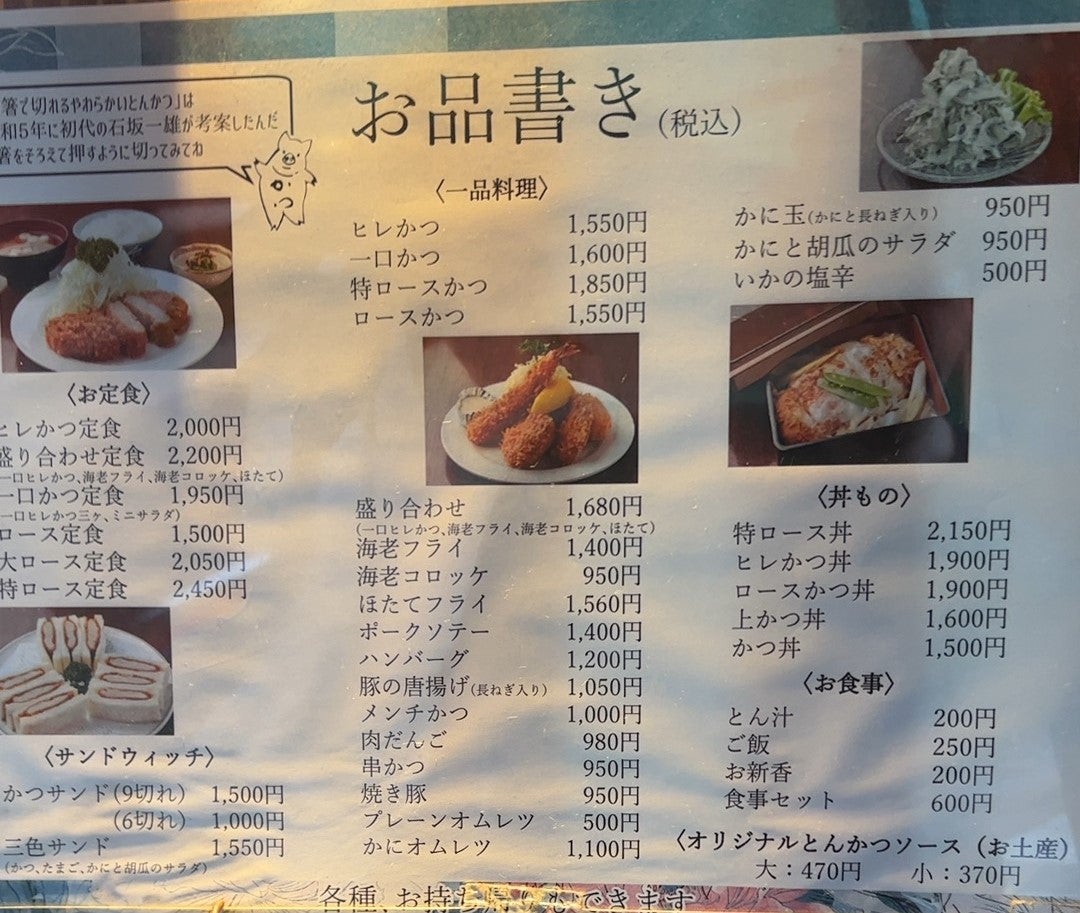 箸で切れるやわらかいとんかつ」は
和5年に初代の石坂一雄が考案したんだ
箸をそろえて押すように切ってみてね
お品書き(税込)
〈お定食〉
ヒレかつ定食 2,000円
盛り合わせ定食 2,200円
一口ヒレかつ、海老フライ、海老コロッケ、ほたて)
一口かつ定食 1,950円
一口ヒレかつ三ヶ、ミニサラダ)
ロース定食 1,500円
大ロース定食 2,050円
特ロース定食 2,450円
〈サンドウィッチ〉
かつサンド(9切れ) 1,500円
(6切れ) 1,000円
三色サンド 1,550円
(かつ、たまご、かにと胡瓜のサラダ)
〈一品料理〉
ヒレかつ 1,550円
一口かつ 1,600円
特ロースかつ 1,850円
ロースかつ 1,550円
盛り合わせ 1,680円
(一口ヒレかつ、海老フライ、海老コロッケ、ほたて)
海老フライ 1,400円
海老コロッケ 950円
ほたてフライ 1,560円
ポークソテー 1,400円
ハンバーグ 1,200円
豚の唐揚げ(長ねぎ入り) 1,050円
メンチかつ 1,000円
肉だんご 980円
串かつ 950円
焼き豚 950円
プレーンオムレツ 500円
かにオムレツ 1,100円
かに玉(かにと長ねぎ入り) 950円
かにと胡瓜のサラダ 950円
いかの塩辛 500円
〈丼もの〉
特ロース丼 2,150円
ヒレかつ丼 1,900円
ロースかつ丼 1,900円
上かつ丼 1,600円
かつ丼 1,500円
〈お食事〉
とん汁 200円
ご飯 250円
お新香 200円
食事セット 600円
〈オリジナルとんかつソース(お土産)
大:470円 小:370円
各種、お持ち帰りもできます